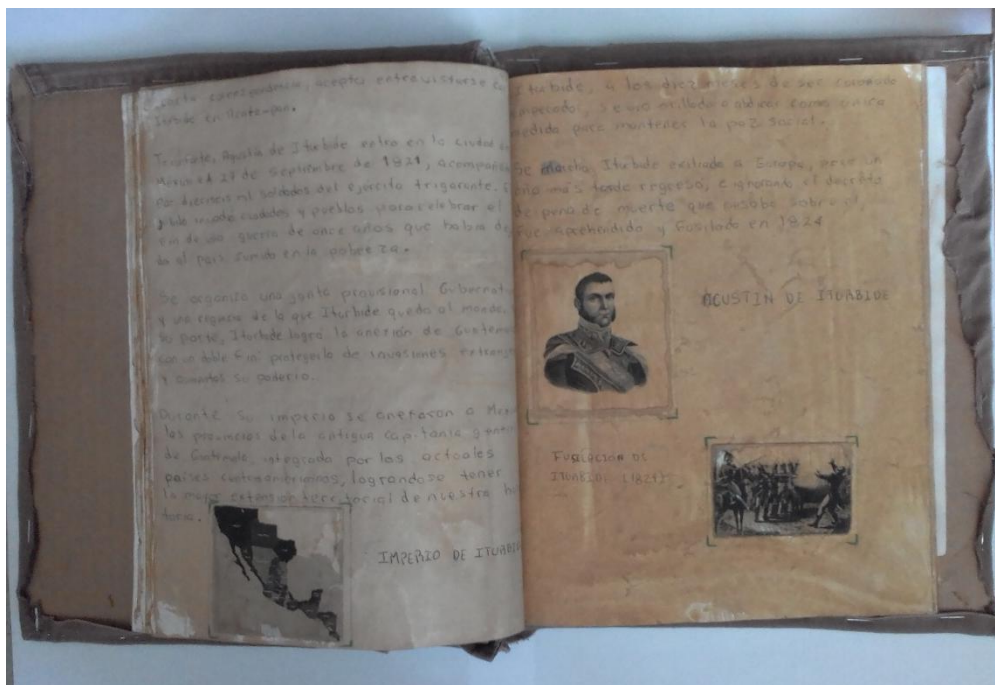 correspondencia, acepta entrevistarse
Iturbide en
Triunfante, Agustín de Iturbide entra en la ciudad
México el 27 de septiembre de 1821,
por dieciseis mil soldados del ejército trigarante.
ciudades y pueblos para celebrar el
de una guerra de once años que había
do al país sumido en la pobreza.
Se organiza una junta provisional Gubernati
y una regencia de la que Iturbide queda al mando.
su parte, Iturbide logra la anexión de Guatema
con un doble fin: protegerla de invasiones extranje
y aumentar su poderio.
Durante su imperio se anexaron a Mex
las provincias de la antigua Capitania gener
de Guatemala, integrada por los actuales
países centroamericanos, lograndose tener
la mayor extension territorial de nuestra his
toria.
IMPERIO DE ITURBIDE
Iturbide, a los diez meses de ser coronado
emperador, se vio orillado a abdicar como unica
medida para mantener la paz social.
Se marcha Iturbide exiliado a Europa, pero un
año más tarde regresa, e ignorando el decreto
de pena de muerte que pesaba sobre el,
fue aprehendido y fusilado en 1824
AGUSTIN DE ITURBIDE
FUSILACION DE
ITURBIDE (1824)